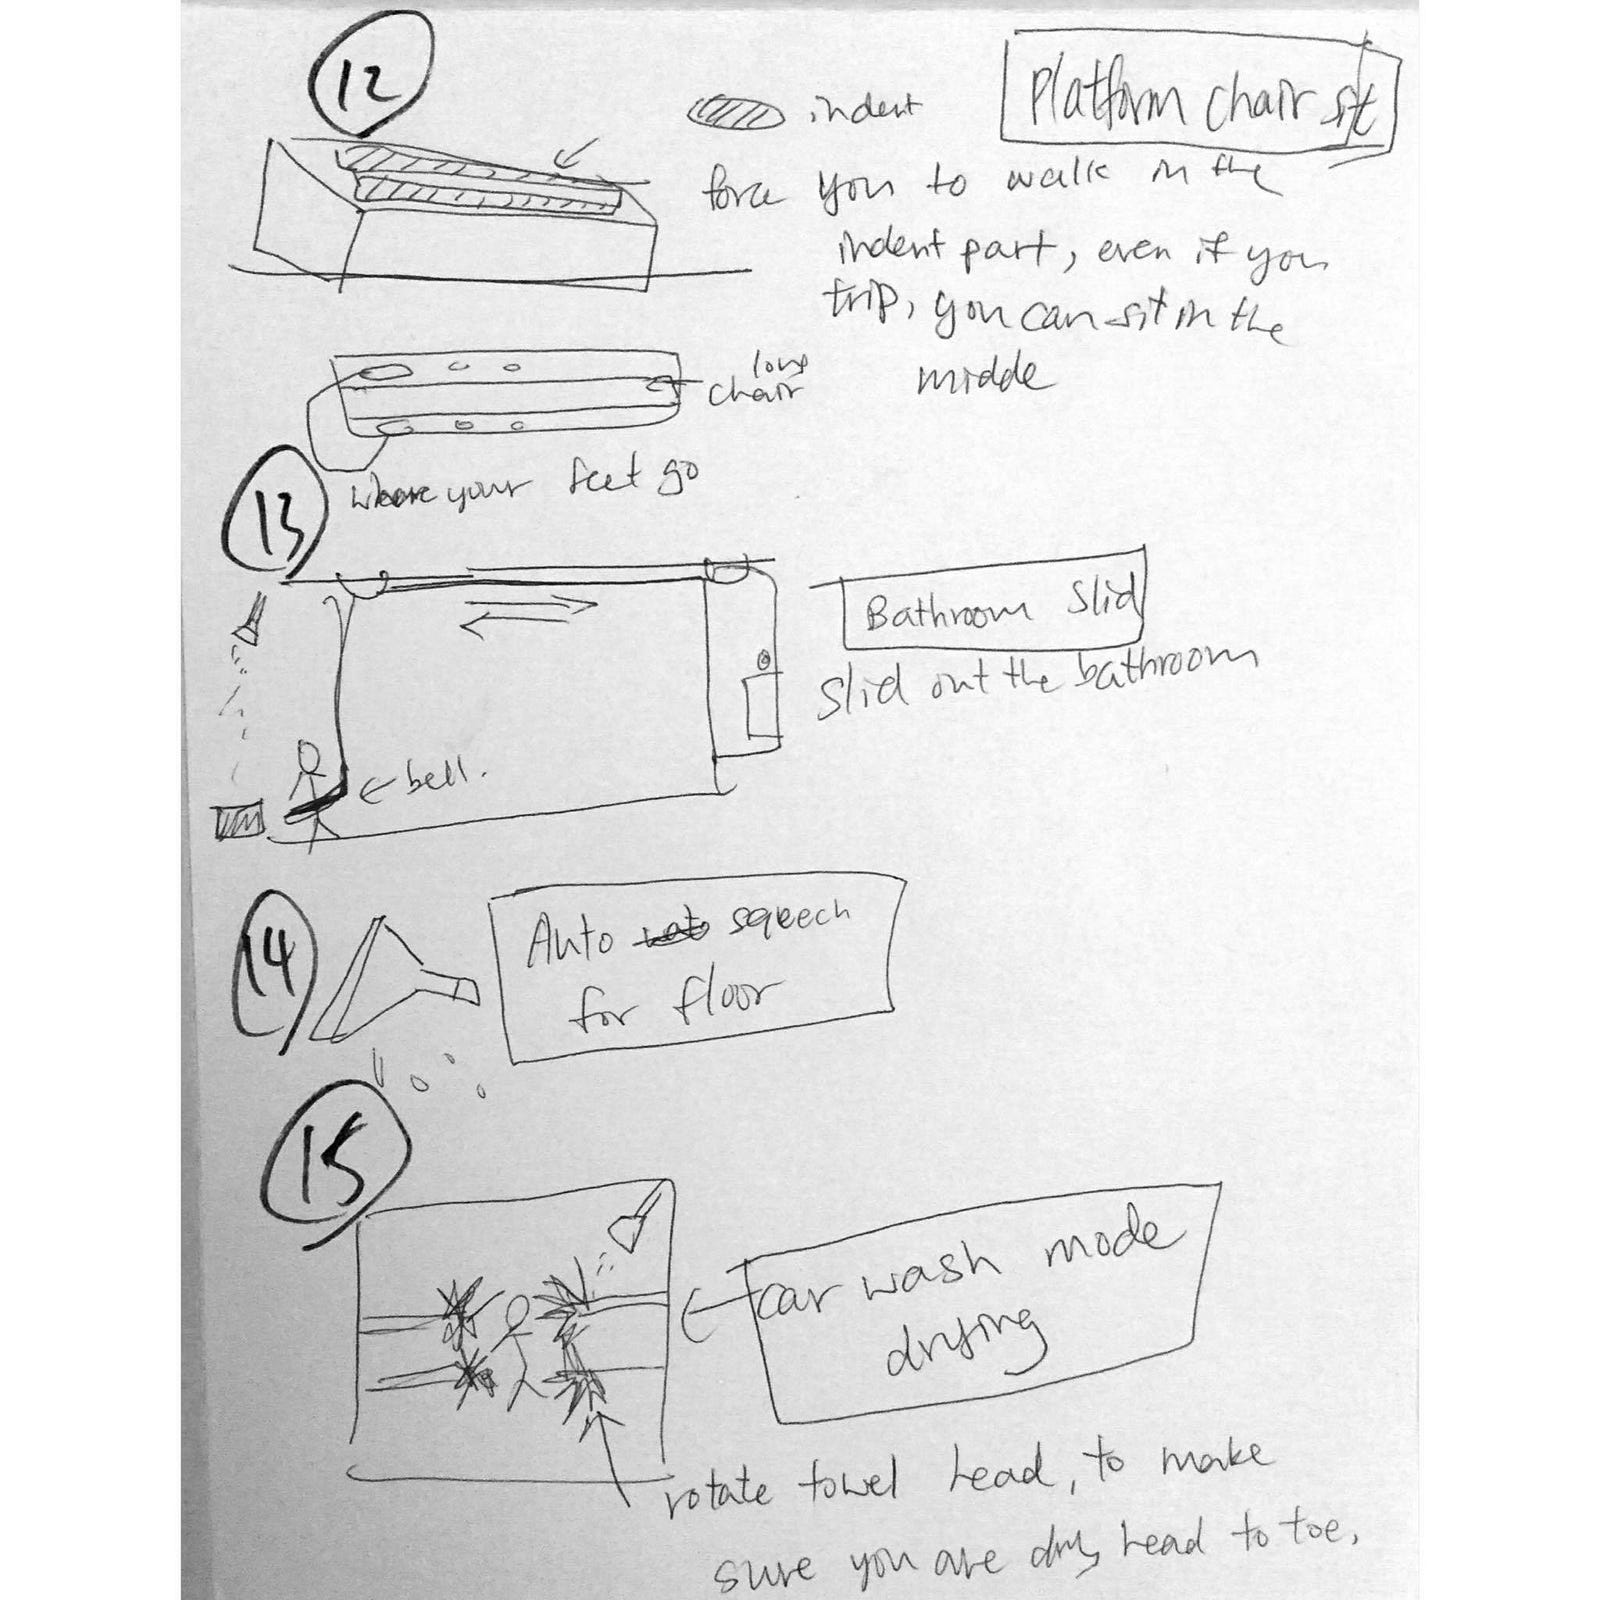 12
indent
Platform chair sit
force you to walk in the
indent part, even if you
trip, you can sit in the
midde
long
chair
where your feet go
13
Bathroom Slid
slid out the bathroom
← bell.
14
Auto squeech
for floor
15
car wash mode
drying
rotate towel head, to make
sure you are dry, head to toe.